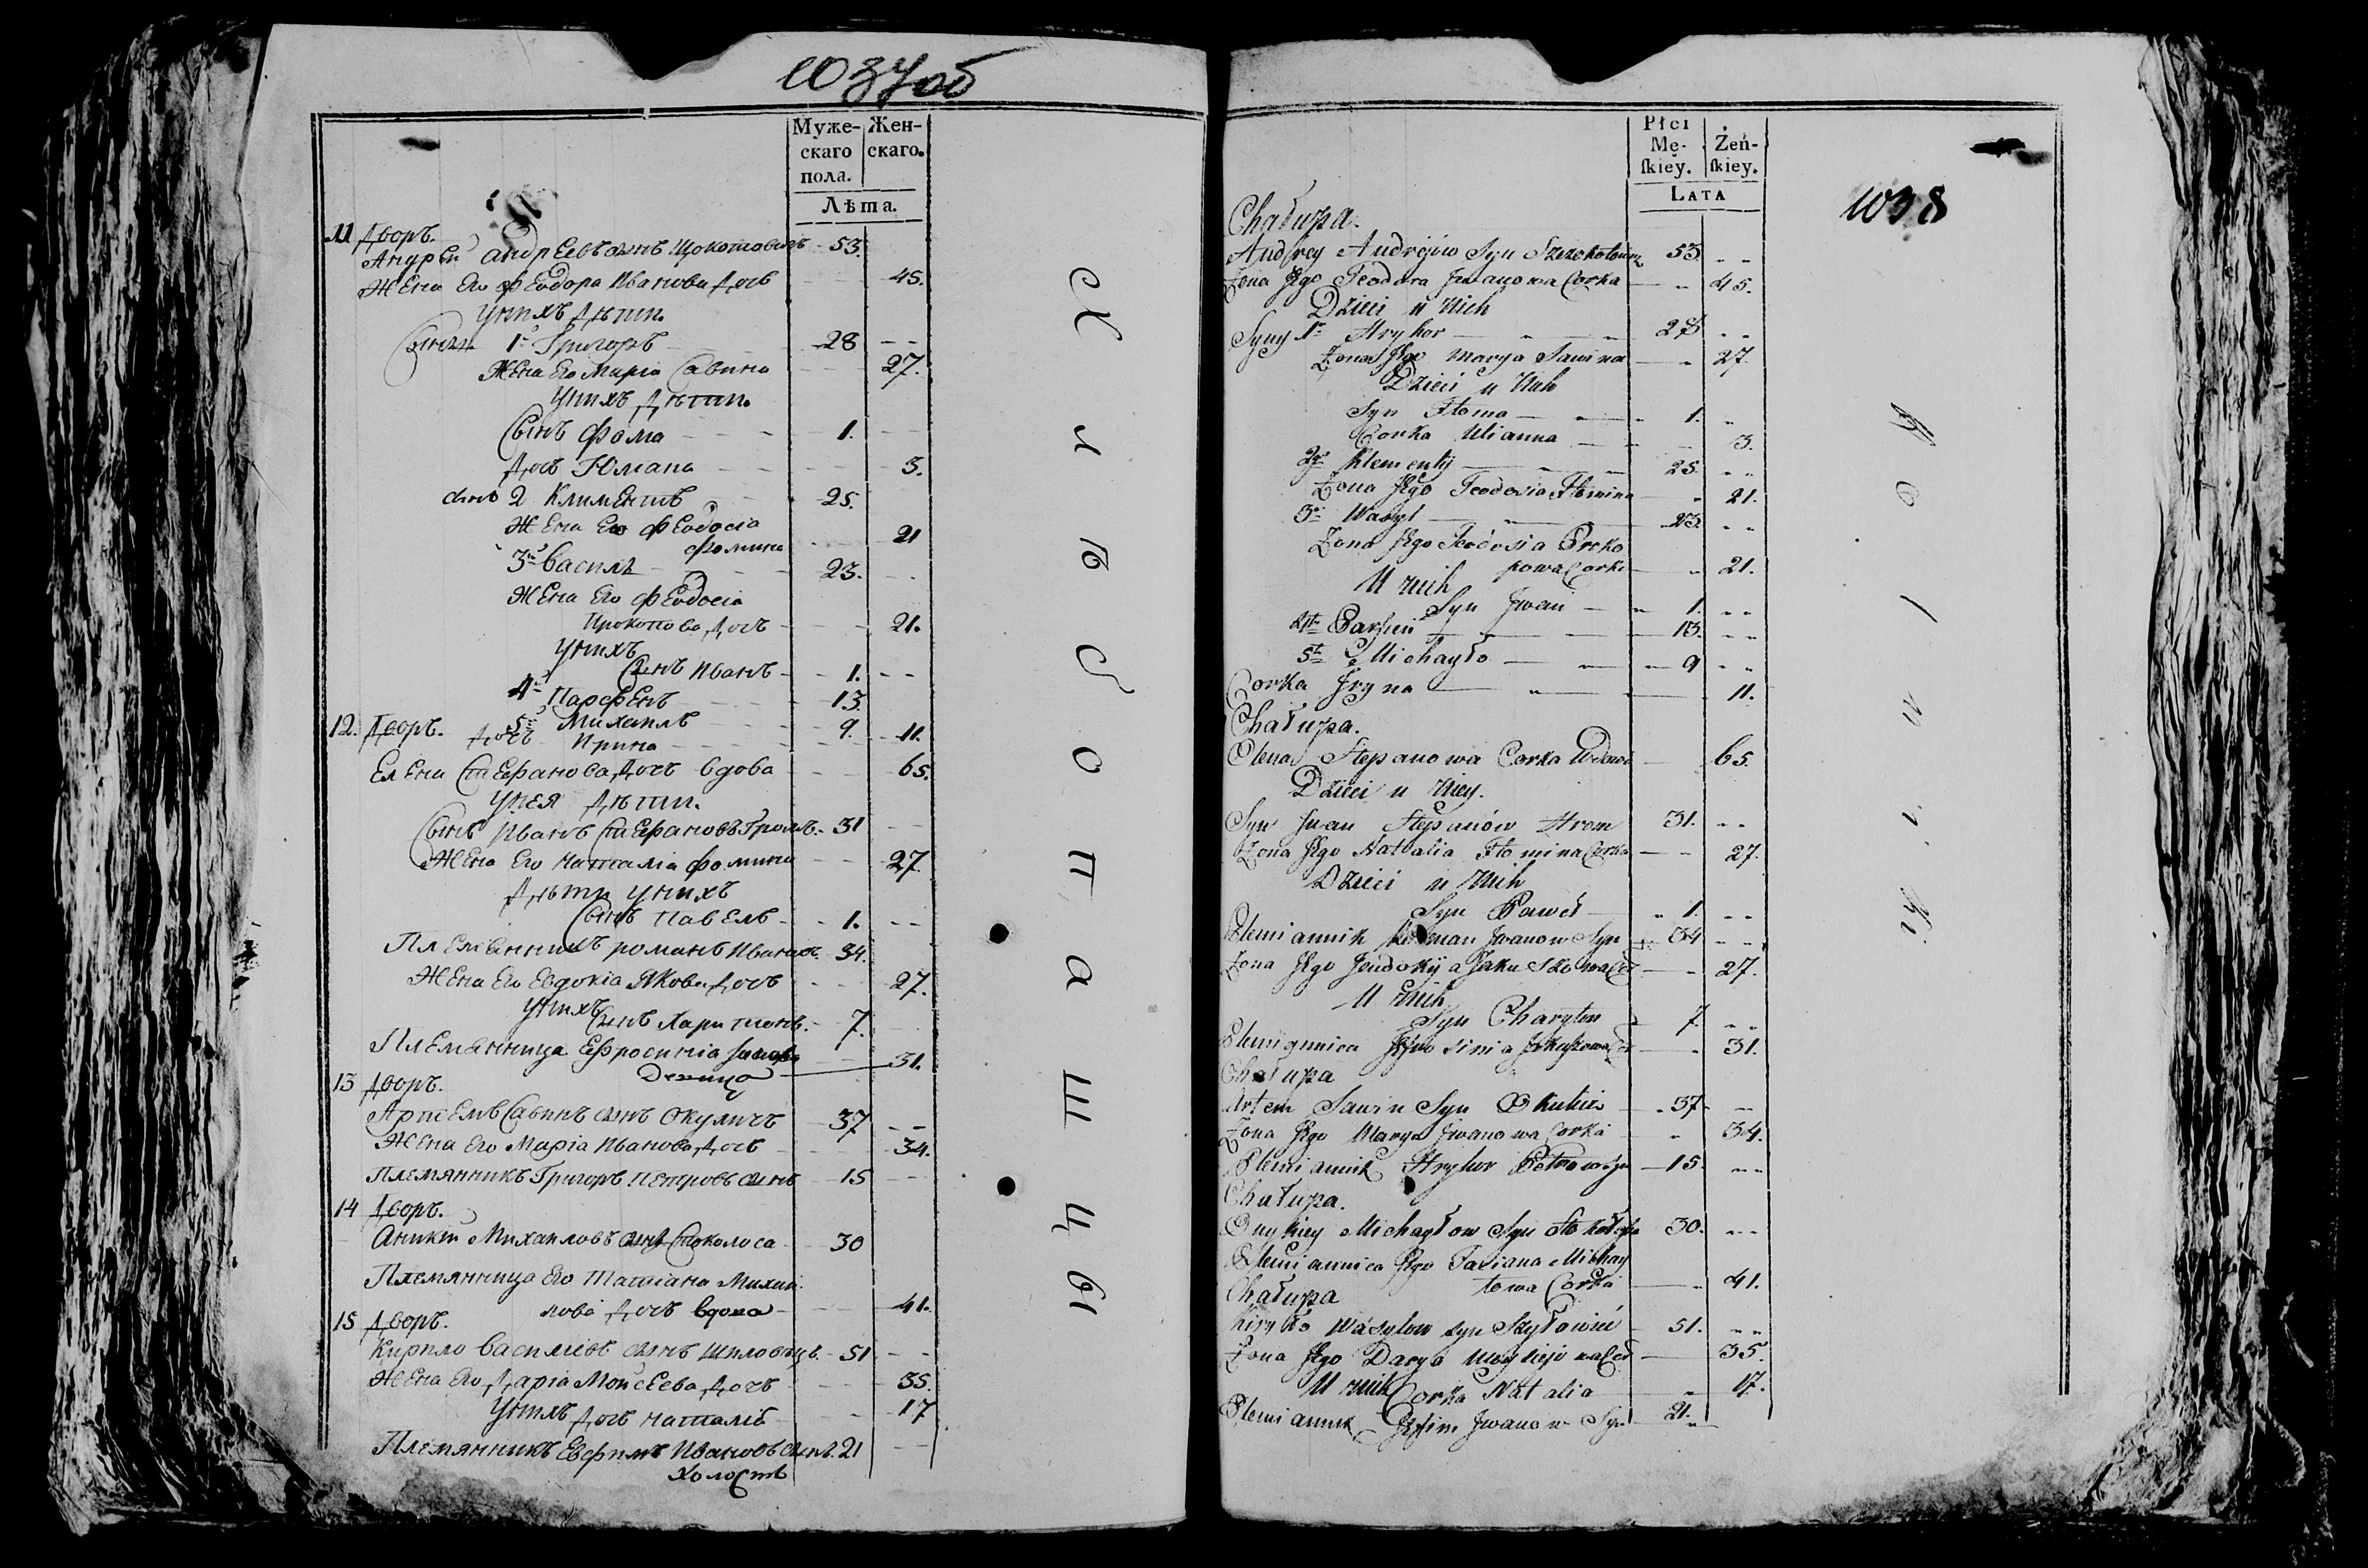 1037об
Муже-
скаго
пола.
Жен-
скаго.
Лѣта.
11 Дворъ.
Андрей Андреевъ сынъ Щокотовичъ 53.
Жена Его Феодора Иванова Дочь 45.
У нихъ Дѣти.
Сыны 1й Григоръ 28
Жена Его Марія Савина 27.
У нихъ Дѣти.
Сынъ Фома 1.
Дочь Юліана 3.
Сынъ 2 Климентъ 25.
Жена Его Феодосіа
Фомина 21
3й Василь 23.
Жена Его Феодосіа
Прокопова Дочь 21.
У нихъ
Сынъ Иванъ 1.
4й Парфенъ 13
5й Михаилъ 9
Дочь Ирина 11.
12. Дворъ.
Елена Стефанова Дочь вдова 65.
У нея Дѣти.
Сынъ Иванъ Стефановъ Громъ 31
Жена Его Наталіа Фомина 27.
Дѣти у нихъ
Сынъ Павелъ 1.
Племянникъ Романъ Ивановъ 34.
Жена Его Евдокіа Якова Дочь 27.
У нихъ
Сынъ Харитонъ. 7.
Племянница Ефросиніа
девица 31.
13 Дворъ.
Артемъ Савинъ сынъ Окуличъ 37
Жена Его Маріа Иванова Дочь 34.
Племянникъ Григоръ Петровъ сынъ 15
14 Дворъ.
Аникій Михаиловъ сынъ Стоколоса 30
Племянница Его Татіана Михай-
лова Дочь вдова 41.
15 Дворъ.
Кирило Василіевъ сынъ Шиловичъ 51
Жена Его Даріа Мойсеева Дочь 35.
У нихъ Дочь Наталіа 17
Племянникъ Евфимъ Ивановъ сынъ. 21
Холостъ
Płci
Mę-
ſkiey.
Żeń-
ſkiey.
LATA
1038
Chałupa.
Andrey Andrejów Syn 53
Żona Jego Teodora Jwanowa Corka 45.
Dzieci u Nich
Syny 1r Hryhor 28
Żona Jego Marya Sawina 27.
Dzieci u Nich
Syn Homa 1.
Corka Ulianna 3.
2gi Klementy 25.
Żona Jego Teodosia Homina 21.
3i Wasyl 23.
Żona Jego Teodosia Proko
powa Corka 21.
U nich
Syn Jwan 1.
4ty Parfien 13.
5ty Michayło 9
Corka Jryna 11.
Chałupa.
Olena Stepanowa Corka Wdowa 65.
Dzieci u Niey.
Syn Jwan Stepanów Hrom 31.
Żona Jego Nathalia Homina Corka 27.
Dzieci u Nich
Syn Paweł 1.
Plemiannik Roman Jwanow Syn 34
Żona Jego Jeudokija 27.
U nich
Syn Charyton 7.
Plemiannica 31.
Chałupa
Artem Sawin Syn Okulicz 37
Żona Jego Marya Jwanowa Corka 34.
Plemiannik Hryhor Petrow Syn 15.
Chałupa.
Onykiey Michayłow Syn 30.
Plemiannica Jego Taciana Michay
łowa Corka 41.
Chałupa
Kiryło Wasylow Syn Szyłowicz 51.
Żona Jego Darya 35.
U nich Corka Natalia 17.
Plemiannik Jefim Jwanow Syn 21.